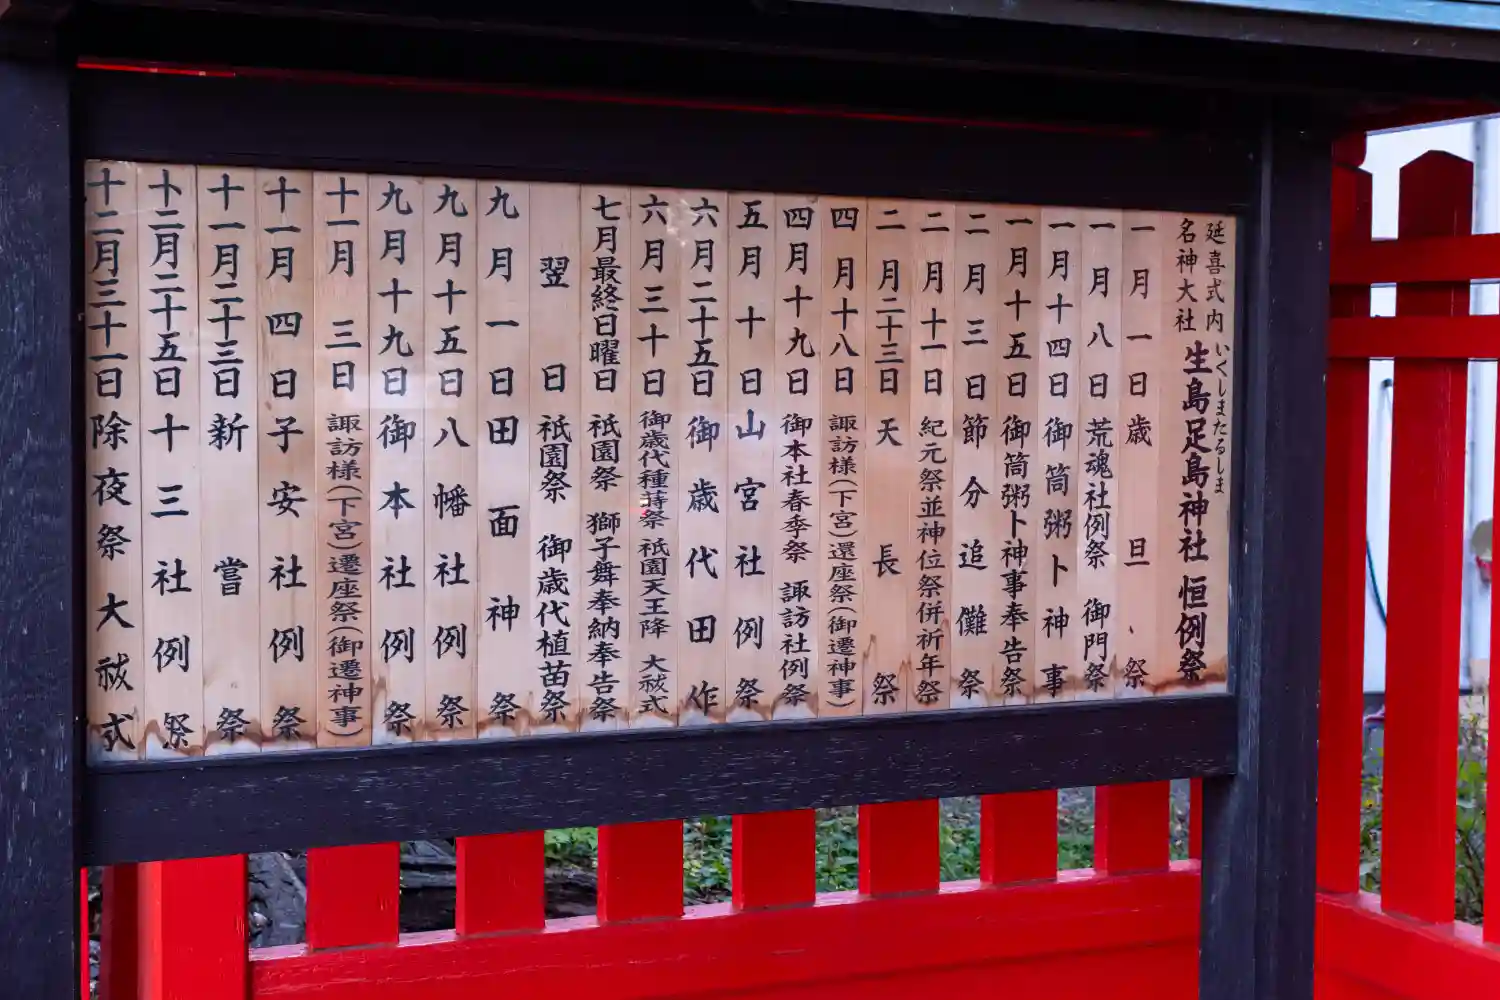 延喜式内
名神大社
生島足島神社 恒例祭
いくしまたるしま
一月一日歳旦祭
一月八日荒魂社例祭 御門祭
一月十四日御筒粥卜神事
一月十五日御筒粥卜神事奉告祭
二月三日節分追儺祭
二月十一日紀元祭並神位祭併祈年祭
二月二十三日天長祭
四月十八日諏訪様(下宮)還座祭(御遷神事)
四月十九日御本社春季祭 諏訪社例祭
五月十日山宮社例祭
六月二十五日御歳代田作
六月三十日御歳代種蒔祭 祇園天王降 大祓式
七月最終日曜日祇園祭 獅子舞奉納奉告祭
翌日祇園祭 御歳代植苗祭
九月一日田面神祭
九月十五日八幡社例祭
九月十九日御本社例祭
十一月三日諏訪様(下宮)遷座祭(御遷神事)
十一月四日子安社例祭
十一月二十三日新嘗祭
十二月二十五日十三社例祭
十二月三十一日除夜祭大祓式